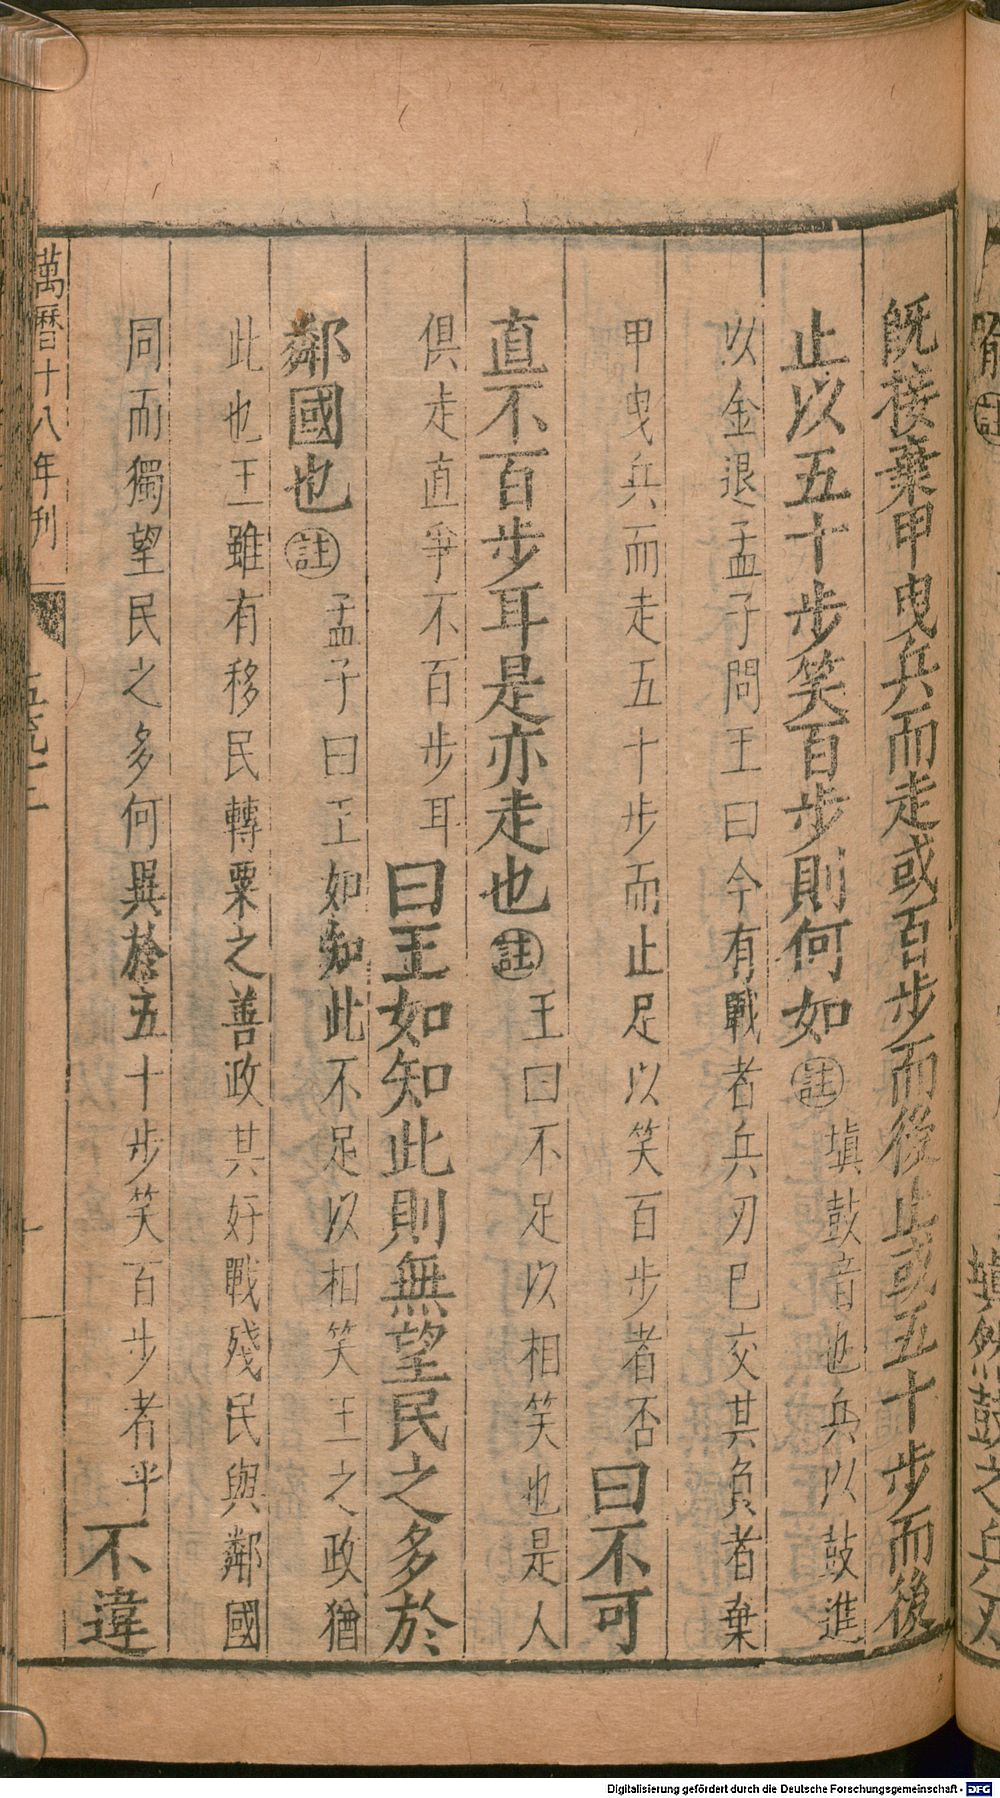 既接棄甲曳兵而走或百步而後止或五十步而後
止以五十步笑百步則何如註塡鼓音也兵以鼓進
以金退孟子問王曰今有戰者兵刃已交其負者棄
甲曳兵而走五十步而止足以笑百步者否曰不可
直不百步耳是亦走也註王曰不足以相笑也是人
俱走直爭不百步耳曰王如知此則無望民之多於
鄰國也註孟子曰王如知此不足以相笑王之政猶
此也王雖有移民轉粟之善政其好戰殘民與鄰國
同而獨望民之多何異於五十步笑百步者乎不違
萬曆十八年刊
塡然鼓之兵刃
Digitalisierung gefördert durch die Deutsche Forschungsgemeinschaft - DFG